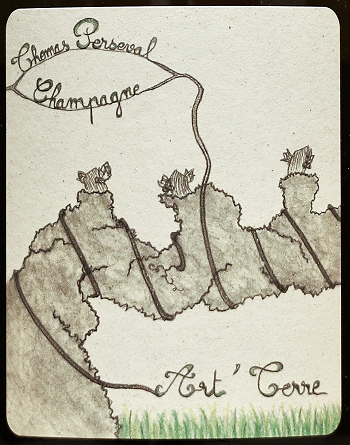 Thomas Perseval
Champagne
Art' Terre